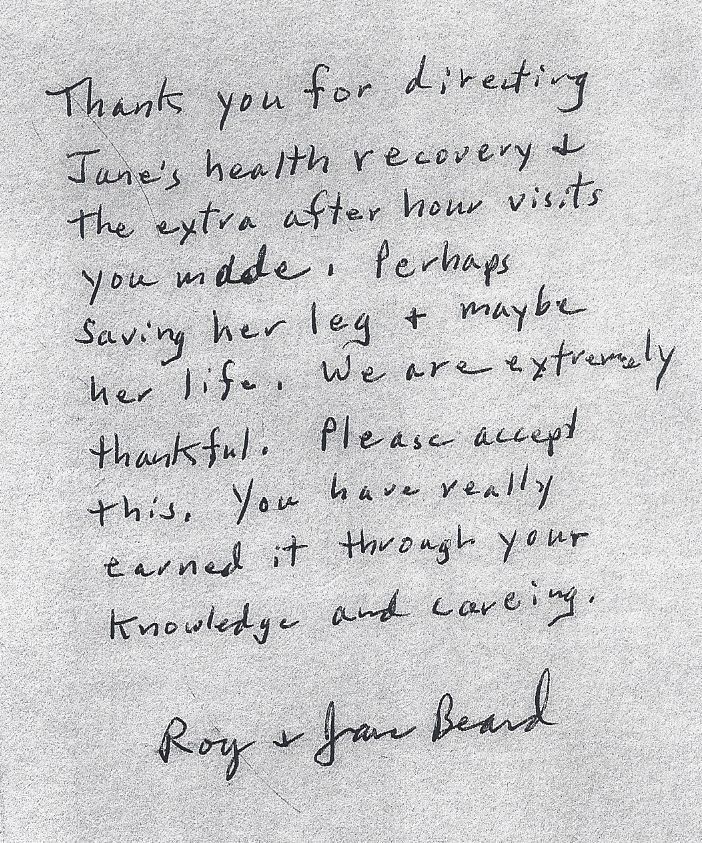 Thank you for directing
Jane's health recovery &
the extra after hour visits
you made. Perhaps
saving her leg + maybe
her life. We are extremely
thankful. Please accept
this. You have really
earned it through your
knowledge and careing.
Roy & Jane Beard